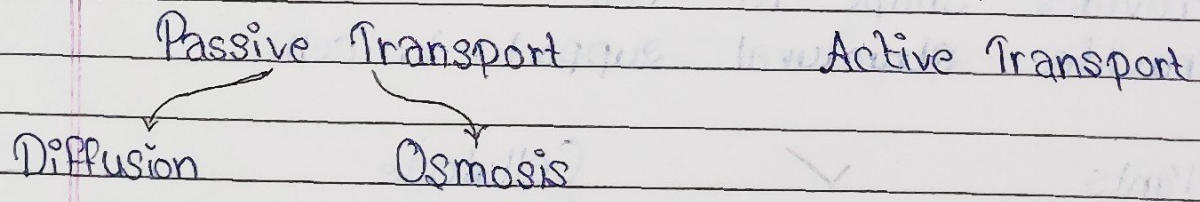 Passive Transport Active Transport
Diffusion Osmosis